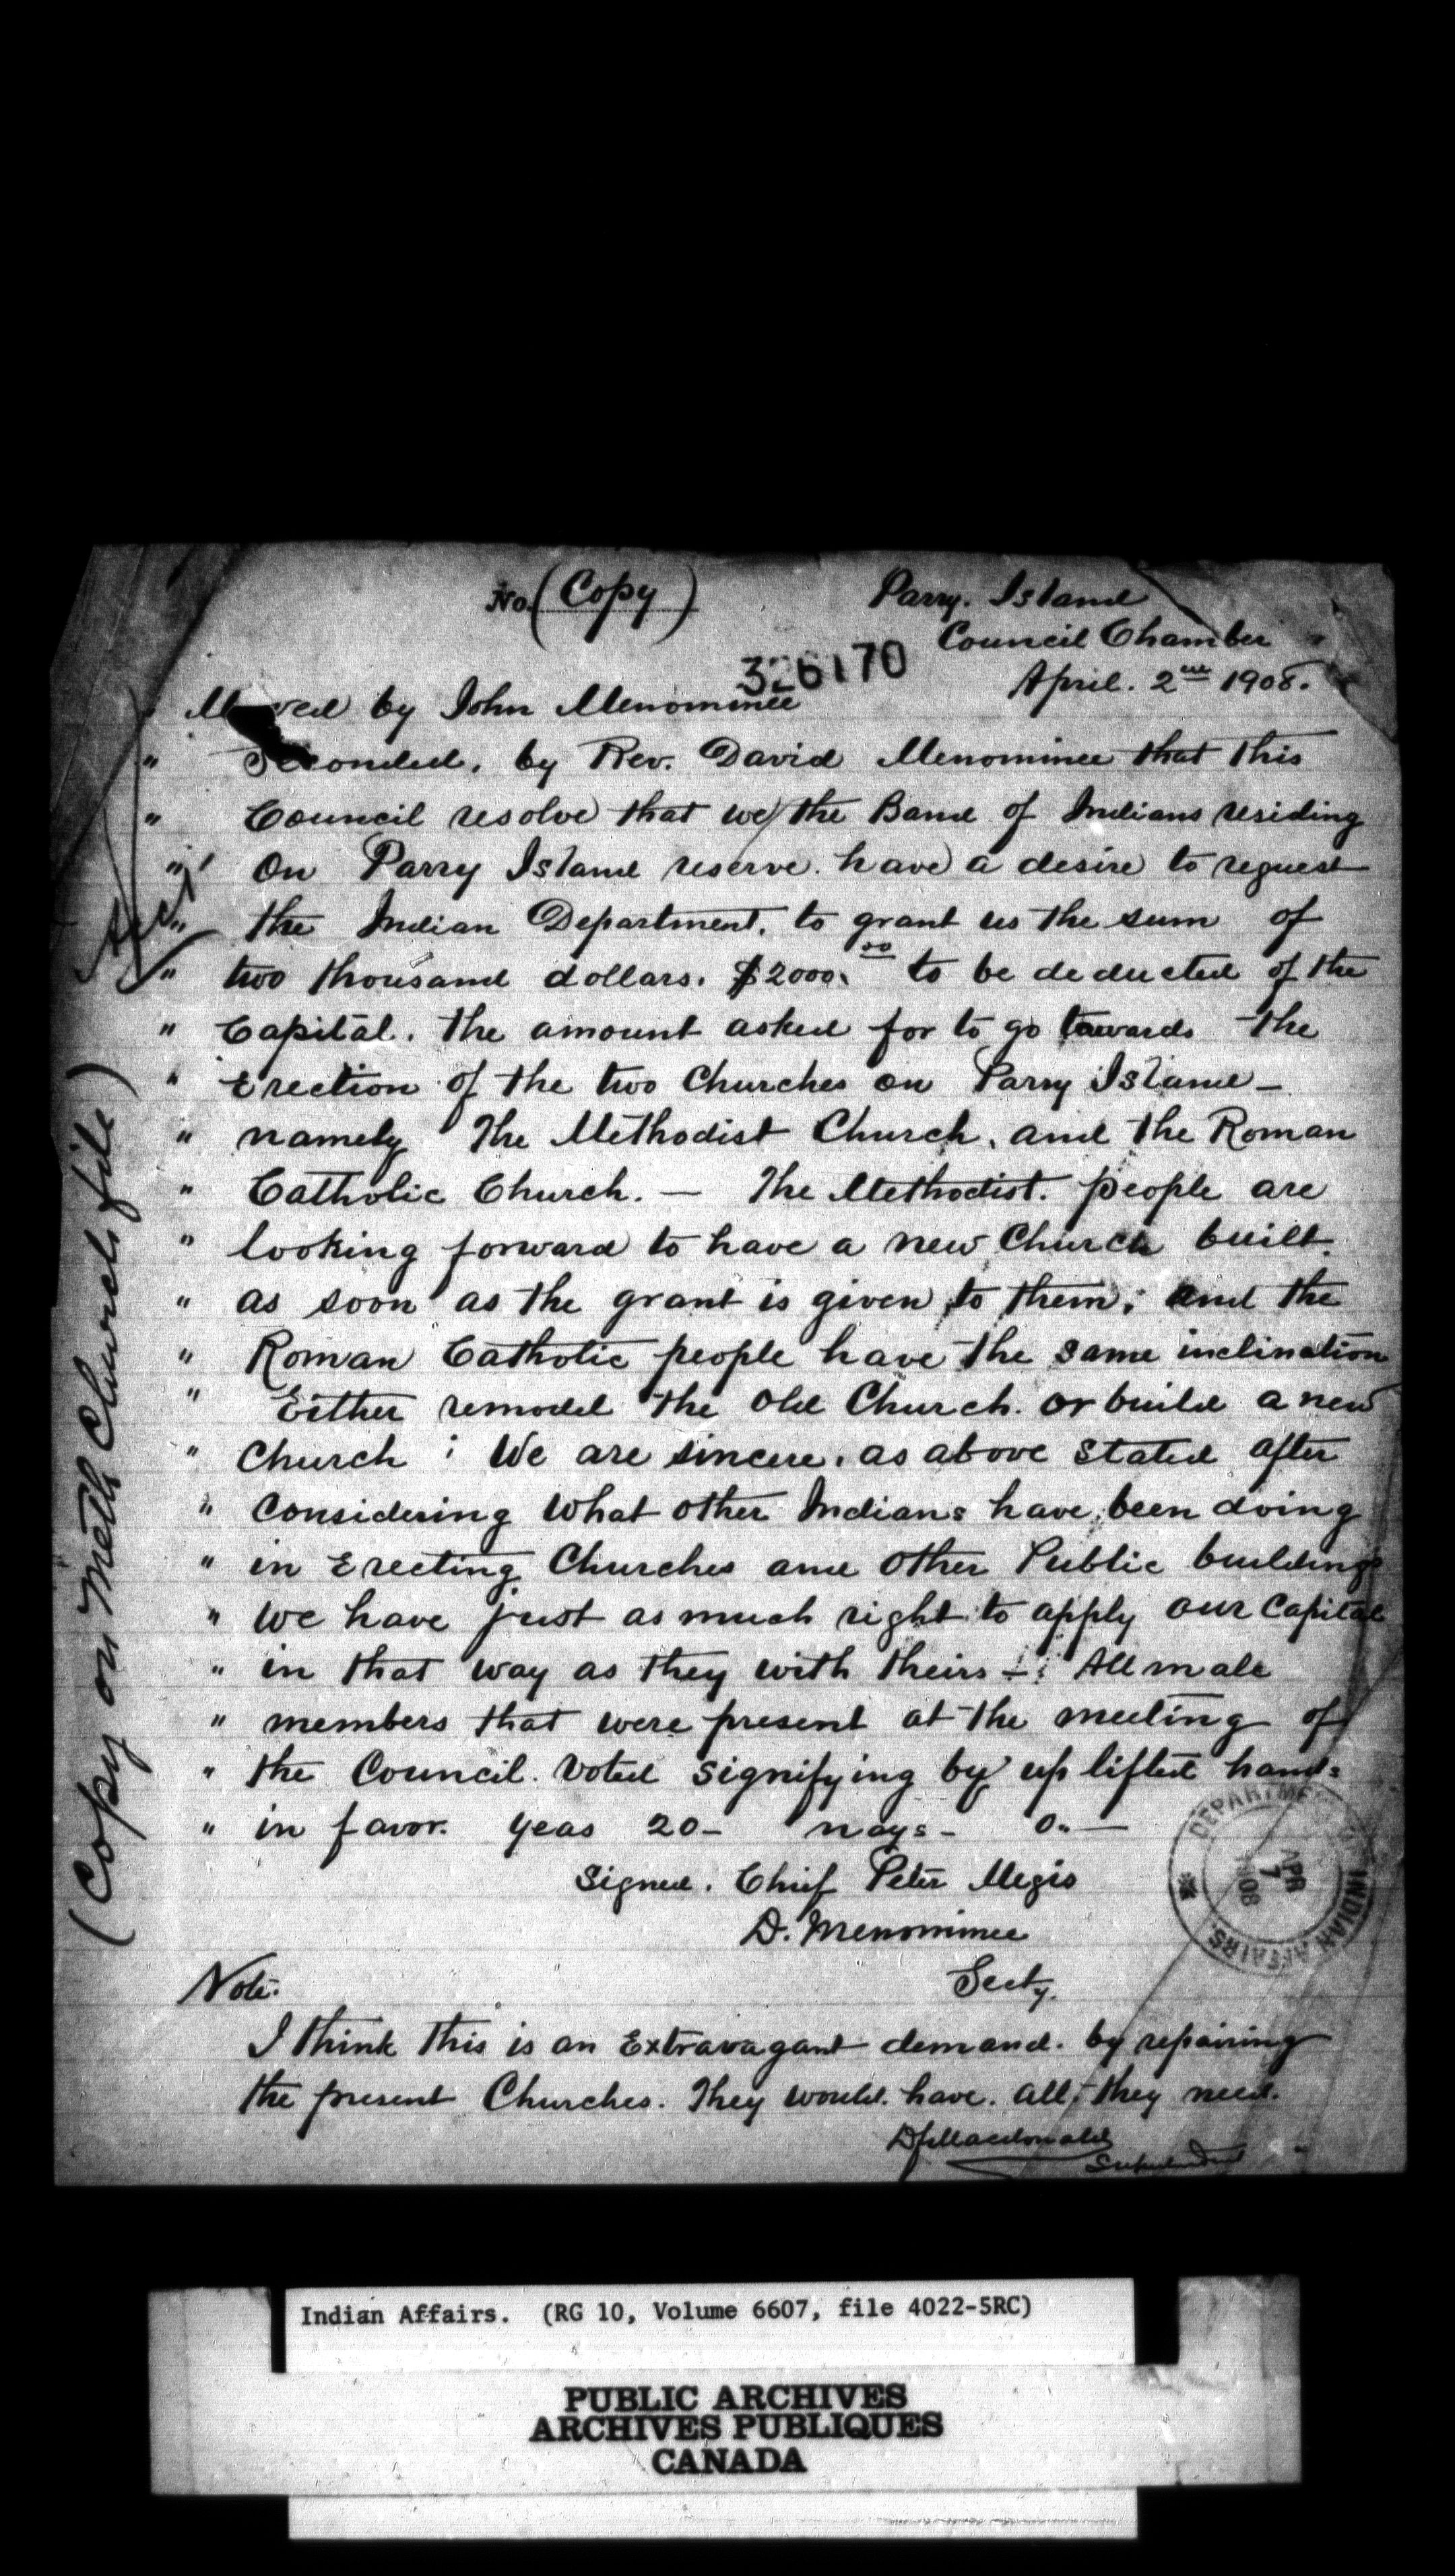 No. (Copy)
Parry. Island
Council Chamber
326170
April. 2nd 1908.
Moved by John Menominee
" Seconded. by Rev. David Menominee that this
" Council resolve that we the Band of Indians residing
" On Parry Island reserve. have a desire to request
" the Indian Department. to grant us the sum of
" two thousand dollars. $2000.00 to be deducted of the
" Capital. the amount asked for to go towards the
" Erection of the two Churches on Parry Island -
" namely The Methodist Church. and the Roman
" Catholic Church. — The Methodist. people are
" looking forward to have a new Church built.
" as soon as the grant is given to them; and the
" Roman Catholic people have the same inclination
" Either remodel the old Church. or build a new
" Church ; We are sincere. as above stated after
" Considering what other Indians have been doing
" in Erecting Churches and other Public buildings
" we have just as much right to apply our Capital
" in that way as they with theirs - ; All male
" members that were present at the meeting of
" the Council. voted signifying by up lifted hands
" in favor. yeas 20 - nays - 0. —
Signed. Chief Peter Megis
D. Menominee
Secty.
Note.
I think this is an Extravagant demand. by repairing
the present Churches. They would. have. all. they need.
D F Macdonald
Superintendent
(Copy on Meth Church file)
DEPARTMENT OF INDIAN AFFAIRS.
APR 7 1908
Indian Affairs. (RG 10, Volume 6607, file 4022-5RC)
PUBLIC ARCHIVES
ARCHIVES PUBLIQUES
CANADA